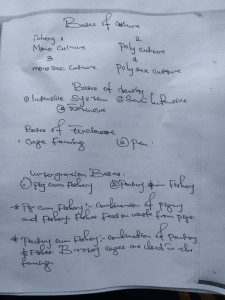 Bases of Culture
Fishery 1 2
Mono Culture Poly Culture
3 4
monosex Culture Poly sex Culture
Bases of density
① Intensive System ② Semi Intensive
③ Extensive
Bases of Enclosure
• Cage Farming ② Pen
Intergration Bases
① Pig cum Fishery ② Poultry cum Fishery
* Pig cum Fishery:- combination of Pigery
and Fishery. Fishes Feed on waste from pigs
* Poultry cum Fishery:- combination of Poultry
& Fishes. Birds cages are used in the
farming.